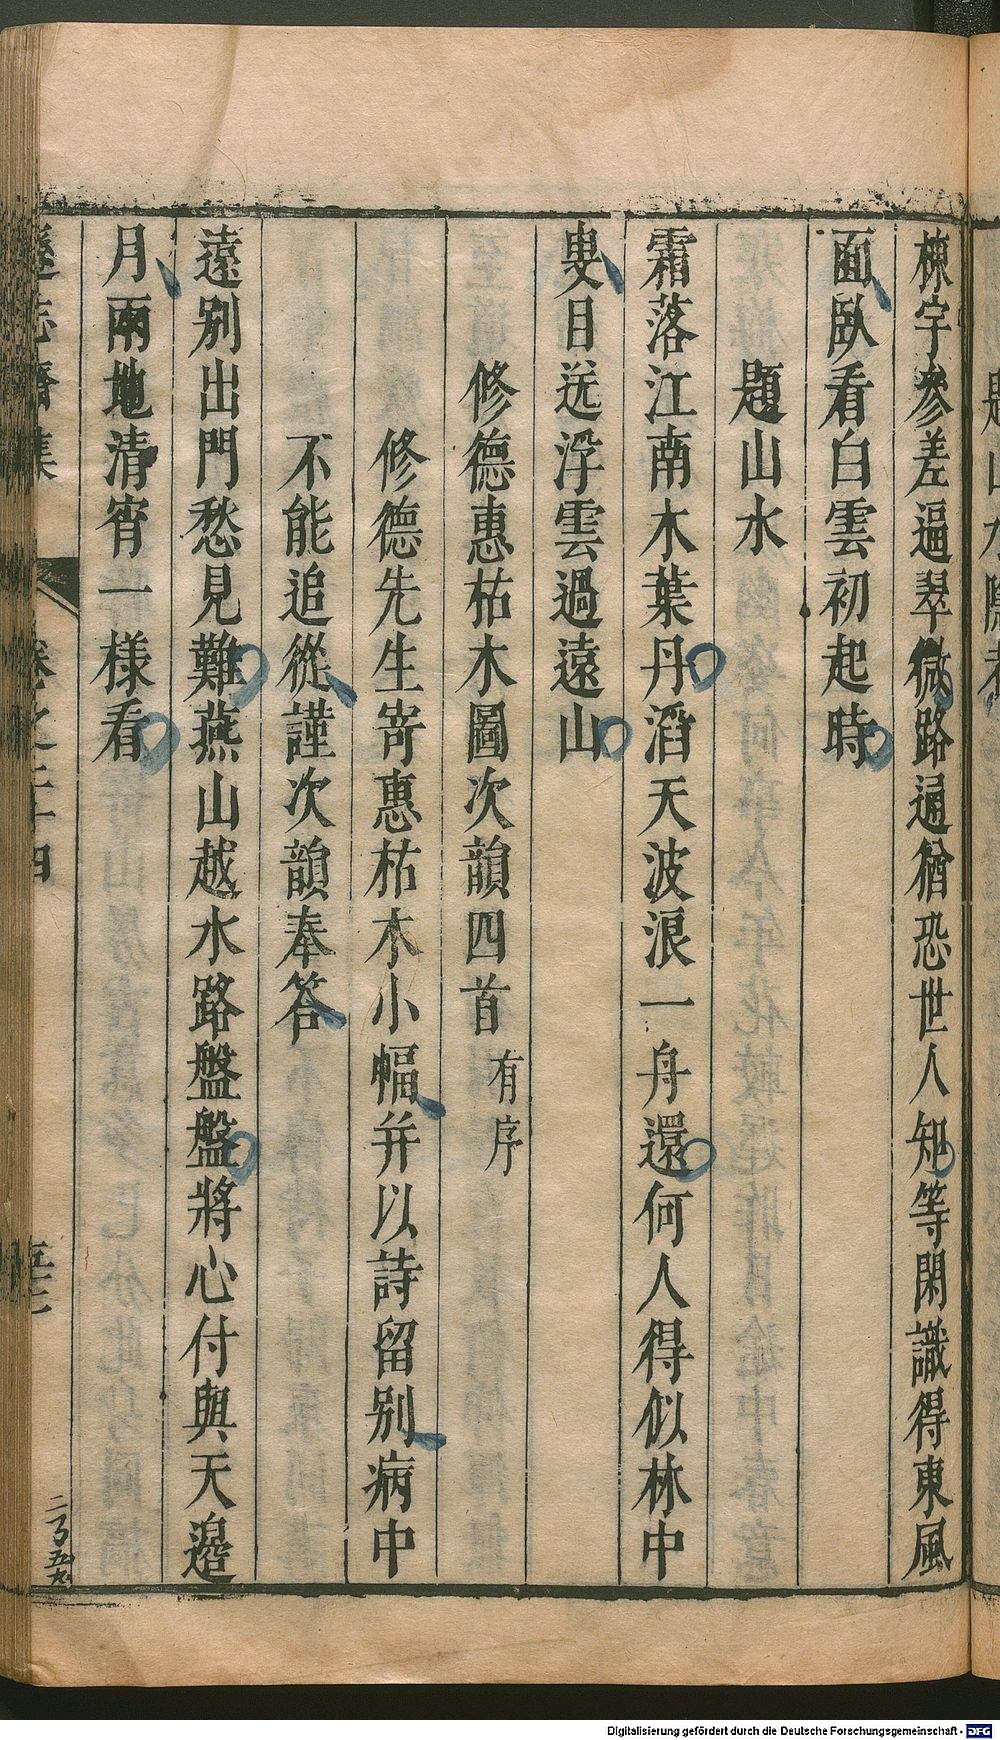 棟宇參差逼翠微路通猶恐世人知等閑識得東風
面臥看白雲初起時
題山水
霜落江南木葉丹滔天波浪一舟還何人得似林中
叟目送浮雲過遠山
修德惠枯木圖次韻四首有序
修德先生寄惠枯木小幅并以詩留别病中
不能追從謹次韻奉答
遠别出門愁見難燕山越水路盤盤將心付與天邉
月兩地清宵一樣看
遜志齋集 卷之二十四
Digitalisierung gefördert durch die Deutsche Forschungsgemeinschaft - DFG